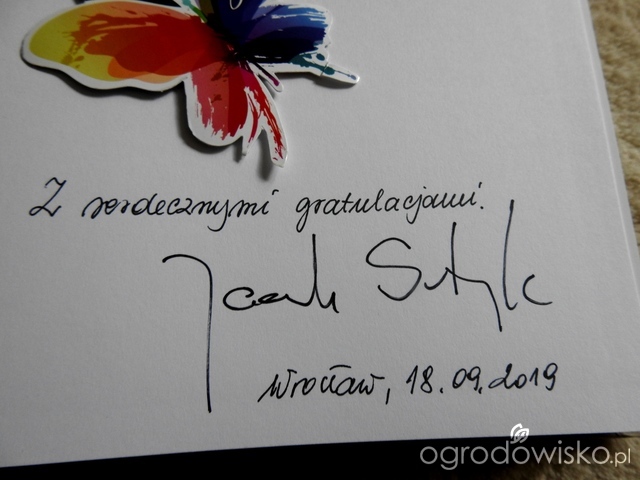 Z serdecznymi gratulacjami.
Jacek Sutryk
Wrocław, 18.09.2019
ogrodowisko.pl